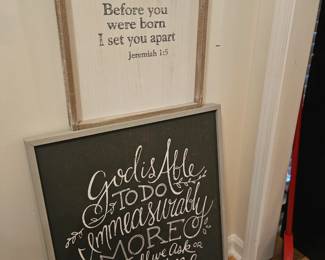 Before you
were born
I set you apart
Jeremiah 1:5
God is Able
TO DO
Immeasurably
MORE
all we Ask or